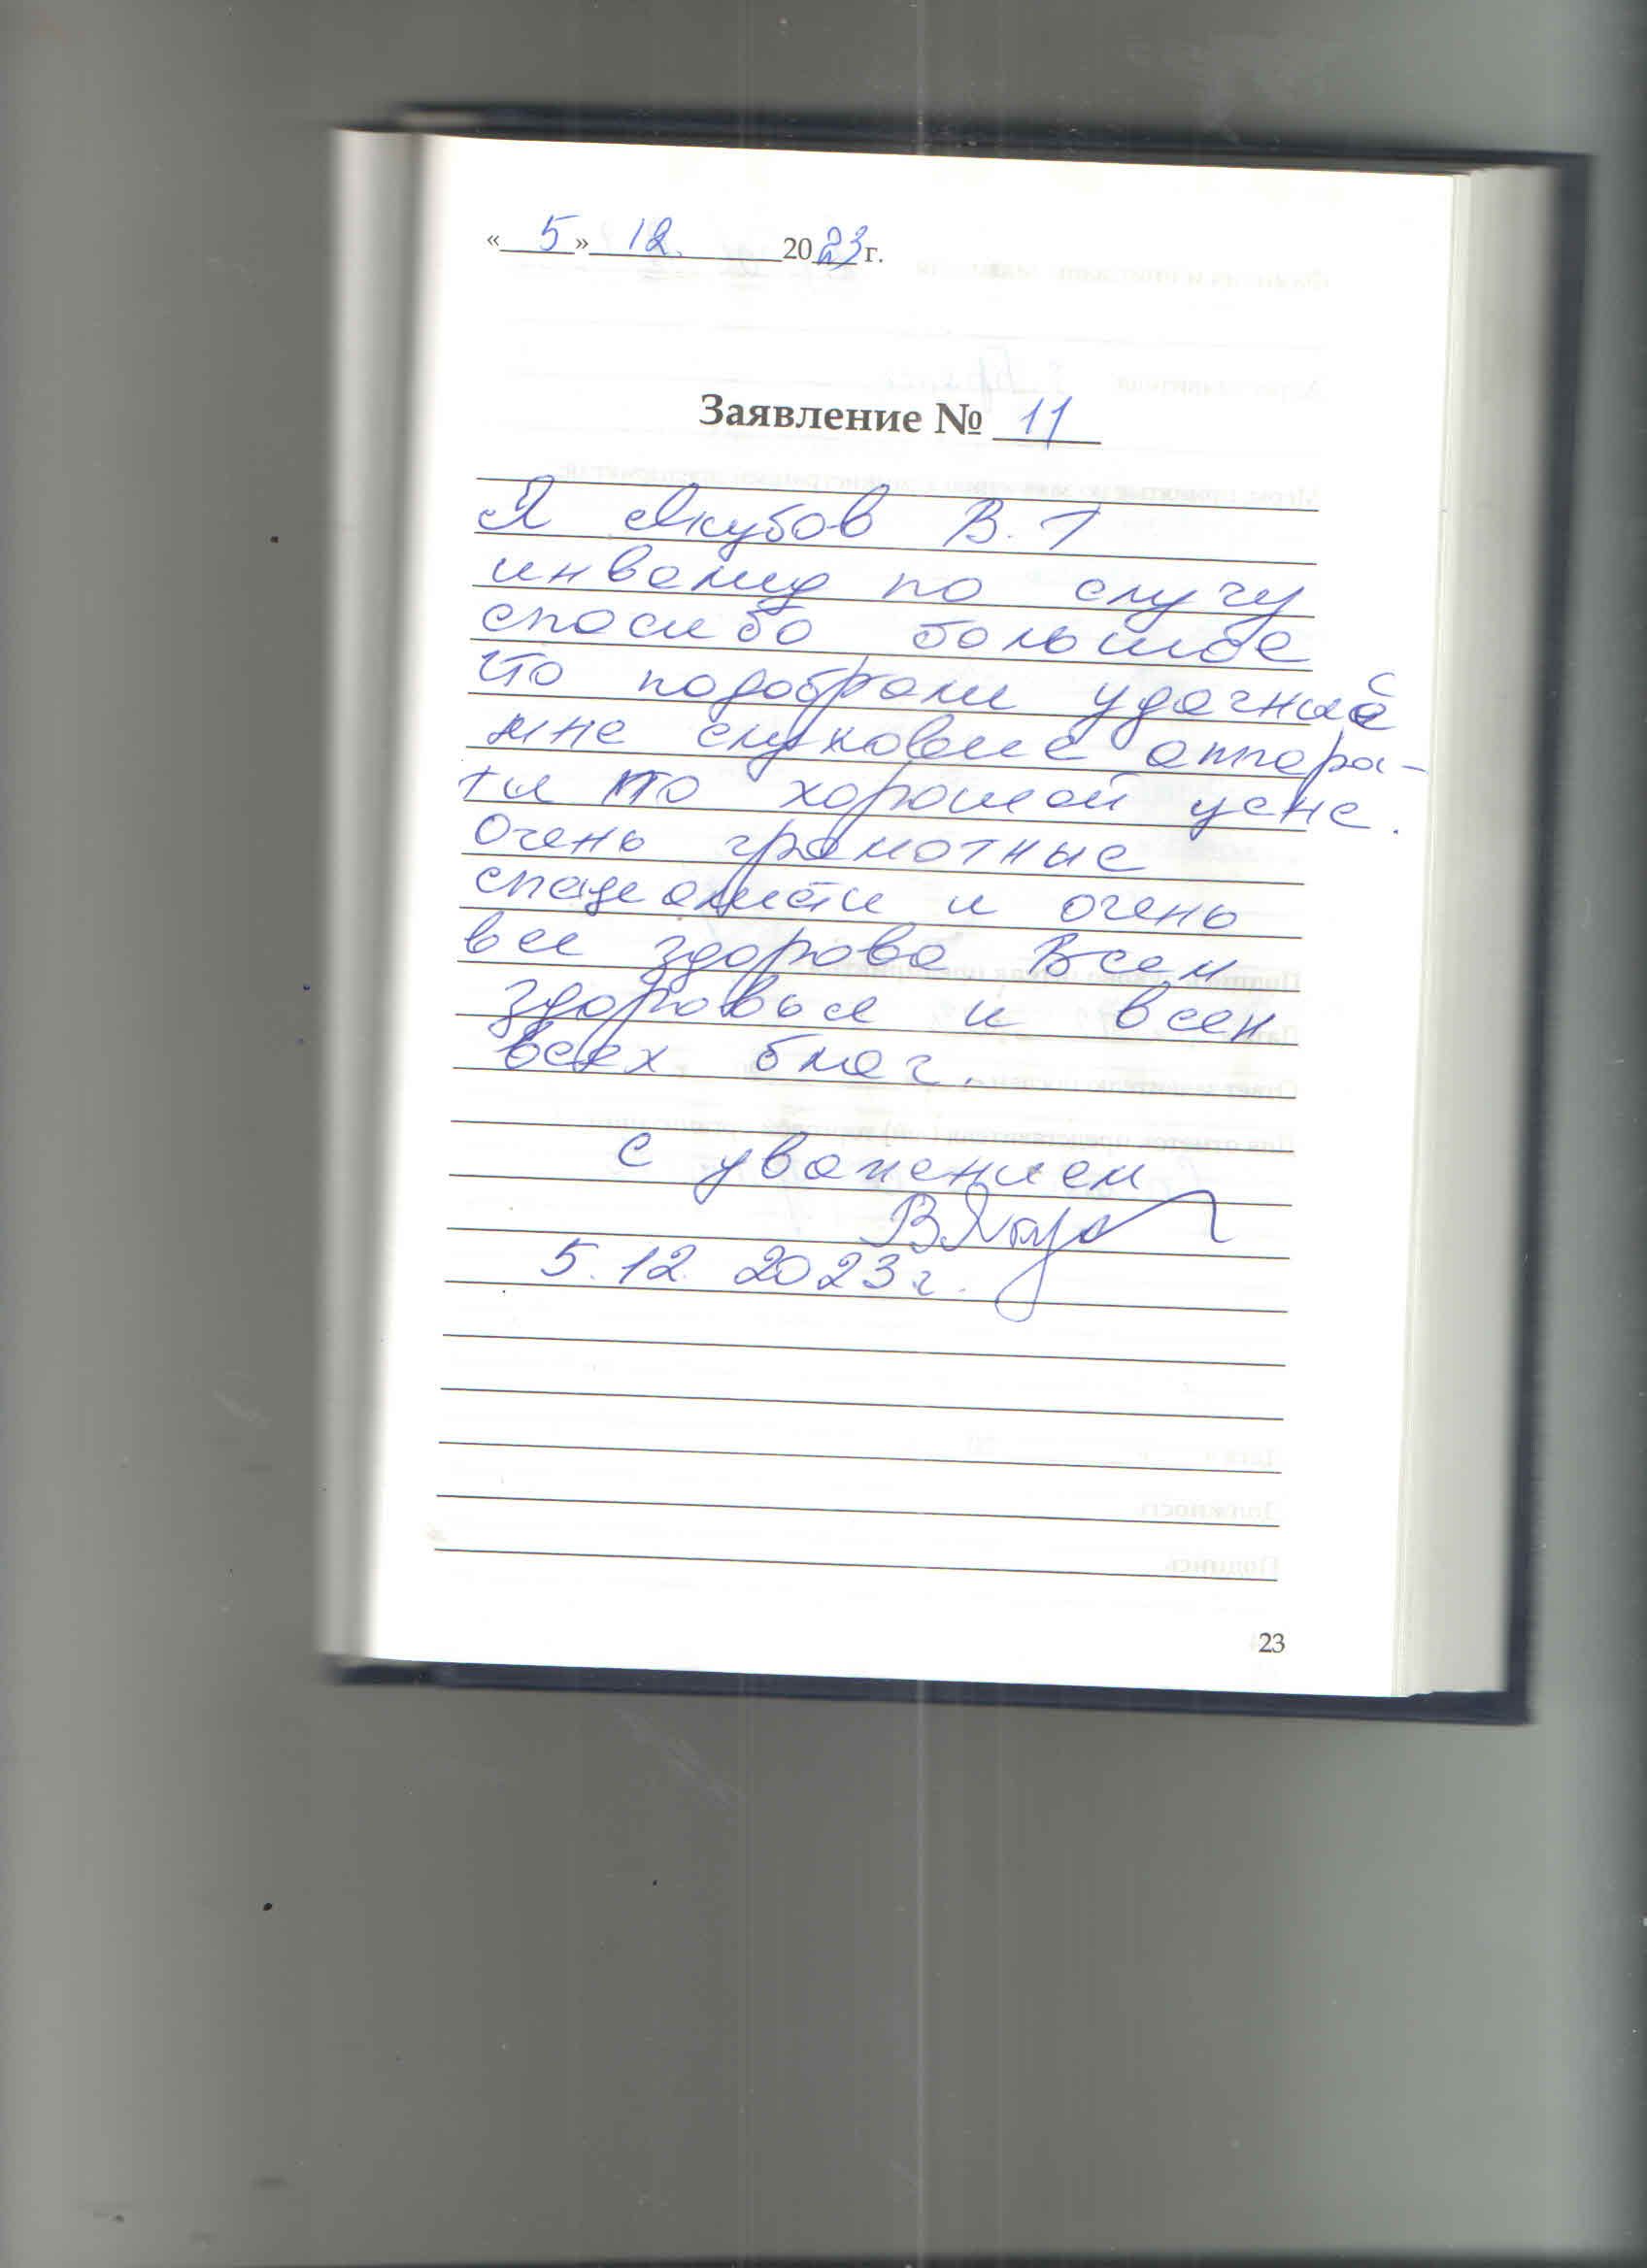 « 5 » 12. 2023 г.
Заявление № 11
Я Якубов В. Т
инвалид по слуху
спасибо большое
что подобрали удачные
мне слуховые аппара-
ты по хорошой цене.
Очень грамотные
специалисты и очень
все здорово Всем
здоровья и всем
всех благ.
с уважением
5. 12. 2023 г.
23